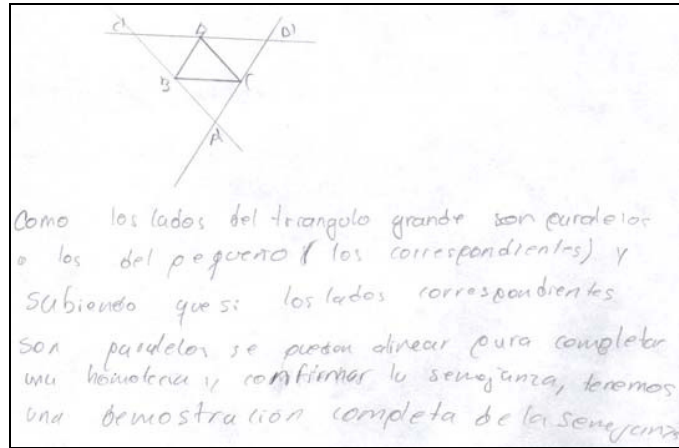 C'
A
B'
B
C
A'
Como los lados del triangulo grande son paralelos
a los del pequeño (los correspondientes) y
sabiendo que si los lados correspondientes
son paralelos se pueden alinear para completar
una homotecia y confirmar la semejanza, tenemos
una demostración completa de la semejanza